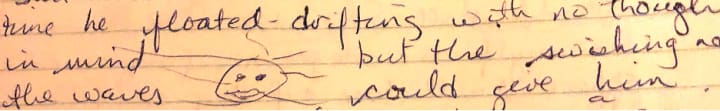 time he floated - drifting with no though
in mind but the swishing no
the waves could give him.